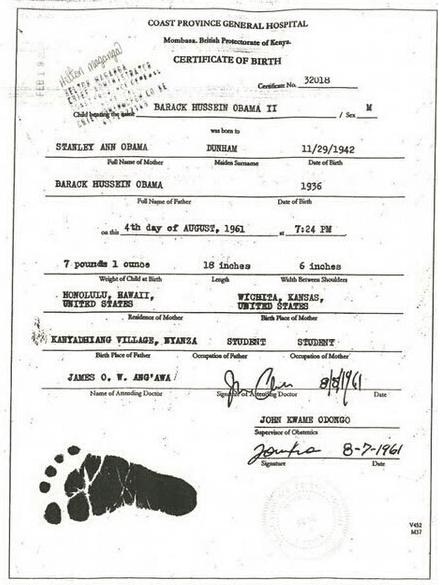 COAST PROVINCE GENERAL HOSPITAL
Mombasa, British Protectorate of Kenya.
CERTIFICATE OF BIRTH
Certificate No. 32018
Hilton maganga
HILTON MAGANGA
CHIEF ADMINISTRATOR
FEB 19
Child bearing the name BARACK HUSSEIN OBAMA II / Sex M
was born to
STANLEY ANN OBAMA DUNHAM 11/29/1942
Full Name of Mother Maiden Surname Date of Birth
BARACK HUSSEIN OBAMA 1936
Full Name of Father Date of Birth
on this 4th day of AUGUST, 1961 at 7:24 PM
7 pounds 1 ounce 18 inches 6 inches
Weight of Child at Birth Length Width Between Shoulders
HONOLULU, HAWAII, WICHITA, KANSAS,
UNITED STATES UNITED STATES
Residence of Mother Birth Place of Mother
KANYADHIANG VILLAGE, NYANZA STUDENT STUDENT
Birth Place of Father Occupation of Father Occupation of Mother
JAMES O. W. ANG'AWA 8/8/1961
Name of Attending Doctor Signature of Attending Doctor Date
JOHN KWAME ODONGO
Supervisor of Obstetrics
8-7-1961
Signature Date
V452
M37